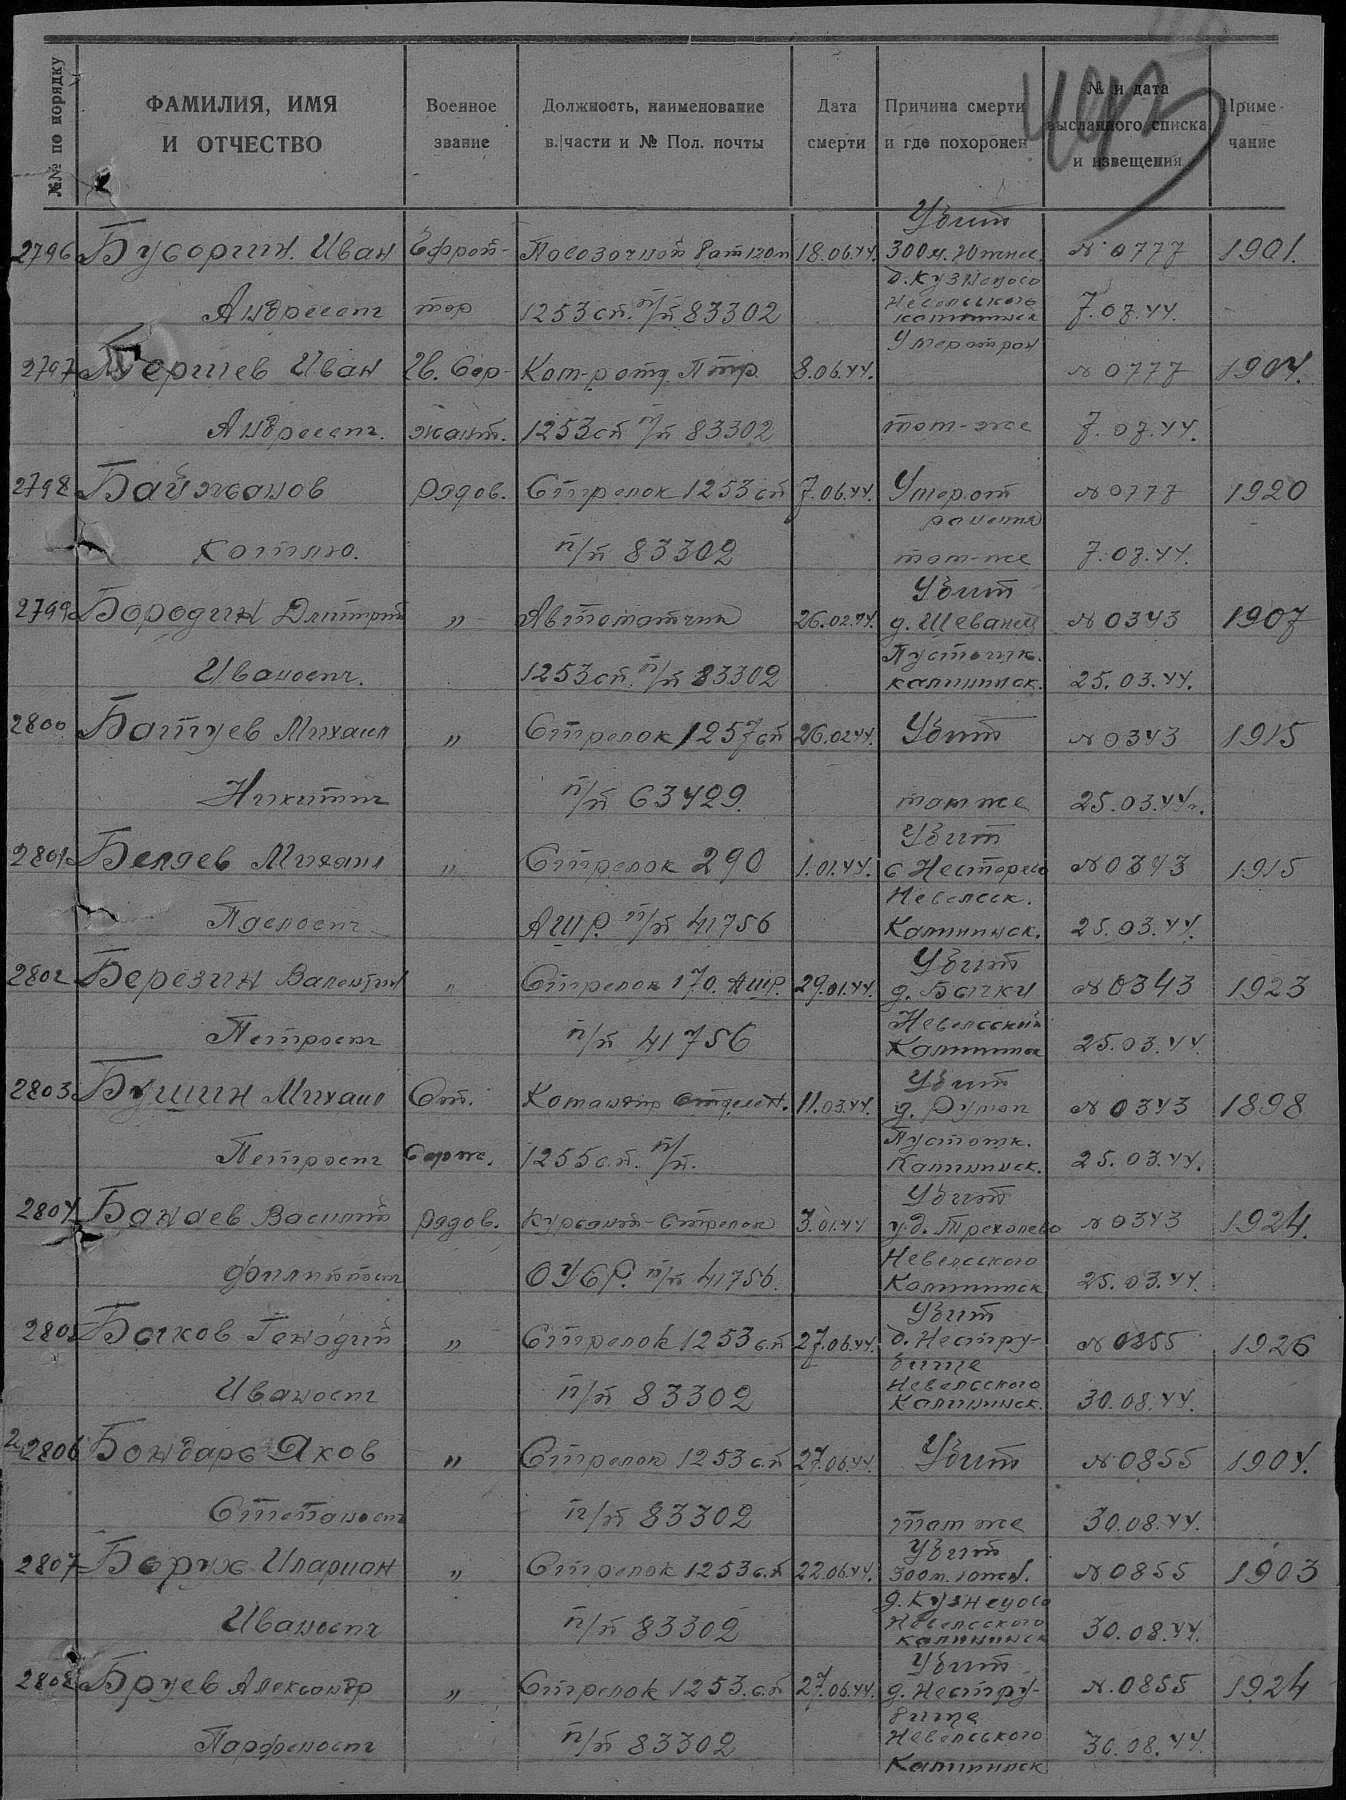 №№ по порядку
ФАМИЛИЯ, ИМЯ И ОТЧЕСТВО
Военное звание
Должность, наименование в. части и № Пол. почты
Дата смерти
Причина смерти и где похоронен
№ и дата высланного списка и извещения
Примечание
Убит
2796 Бусоргин Иван Ефрей- 18.06.44. 300 м. Южнее № 0777 1901.
д. Кузнецово
Андреевич тор 1253 сп. п/п 83302 Невельского 7.07.44.
Умер от ран
2797 Иван Гв. Сер- Ком-р отд. Птр 8.06.44. № 0777 1904.
Андреевич. жант. 1253 сп п/п 83302 там-же 7.07.44.
2798 Байжанов рядов. Стрелок 1253 сп 7.06.44. Умер от № 0777 1920
ранения
п/п 83302 там-же 7.07.44.
Убит
2799 Бородин Дмитрий " Автоматчик 26.02.44. д. № 0343 1907
Пустошк.
Иванович. 1253 сп. п/п 83302 калининск. 25.03.44.
2800 Батуев Михаил " Стрелок 1257 сп 26.02.44. Убит № 0343 1915
Никитич п/п 63429. там же 25.03.44г.
Убит
2801 Беляев Михаил " Стрелок 290 1.01.44. с № 0343 1915
Невельск.
АШР. п/п 41756 Калининск. 25.03.44.
Убит
2802 Березин Валентин " Стрелок 170. АШР. 29.01.44. д. Бычки № 0343 1923
Невельский
Петрович п/п 41756 Калининск 25.03.44.
Убит
2803 Бушин Михаил Ст. Командир отделен. 11.03.44. д. № 0343 1898
Пустошк.
Петрович Серж. 1255 с.п. п/п. Калининск. 25.03.44.
Убит
2804 Банаев Василий рядов. Курсант-Стрелок 3.01.44 у д. Трехалево № 0343 1924.
Невельского
Филиппович ОУСР. п/п 41756. Калининск 25.03.44.
Убит
2805 Бычков Генадий " Стрелок 1253 с.п 27.06.44. д. Нестру- № 0855 1926
бище
Невельского
Иванович п/п 83302 Калининск. 30.08.44.
2806 Бондарь Яков " Стрелок 1253 с.п 27.06.44. Убит № 0855 1904.
Степанович п/п 83302 там же 30.08.44.
Убит
2807 Борух Иларион " Стрелок 1253 с.п 22.06.44. 300 м. южн. № 0855 1903
д. Кузнецово
Невельского
Иванович п/п 83302 калининск 30.08.44.
Убит
2808 Бруев Александр " Стрелок 1253. с.п 27.06.44. д. Нестру- №. 0855 1924
бище
Невельського
Парфенович п/п 83302 Калининск 30.08.44.